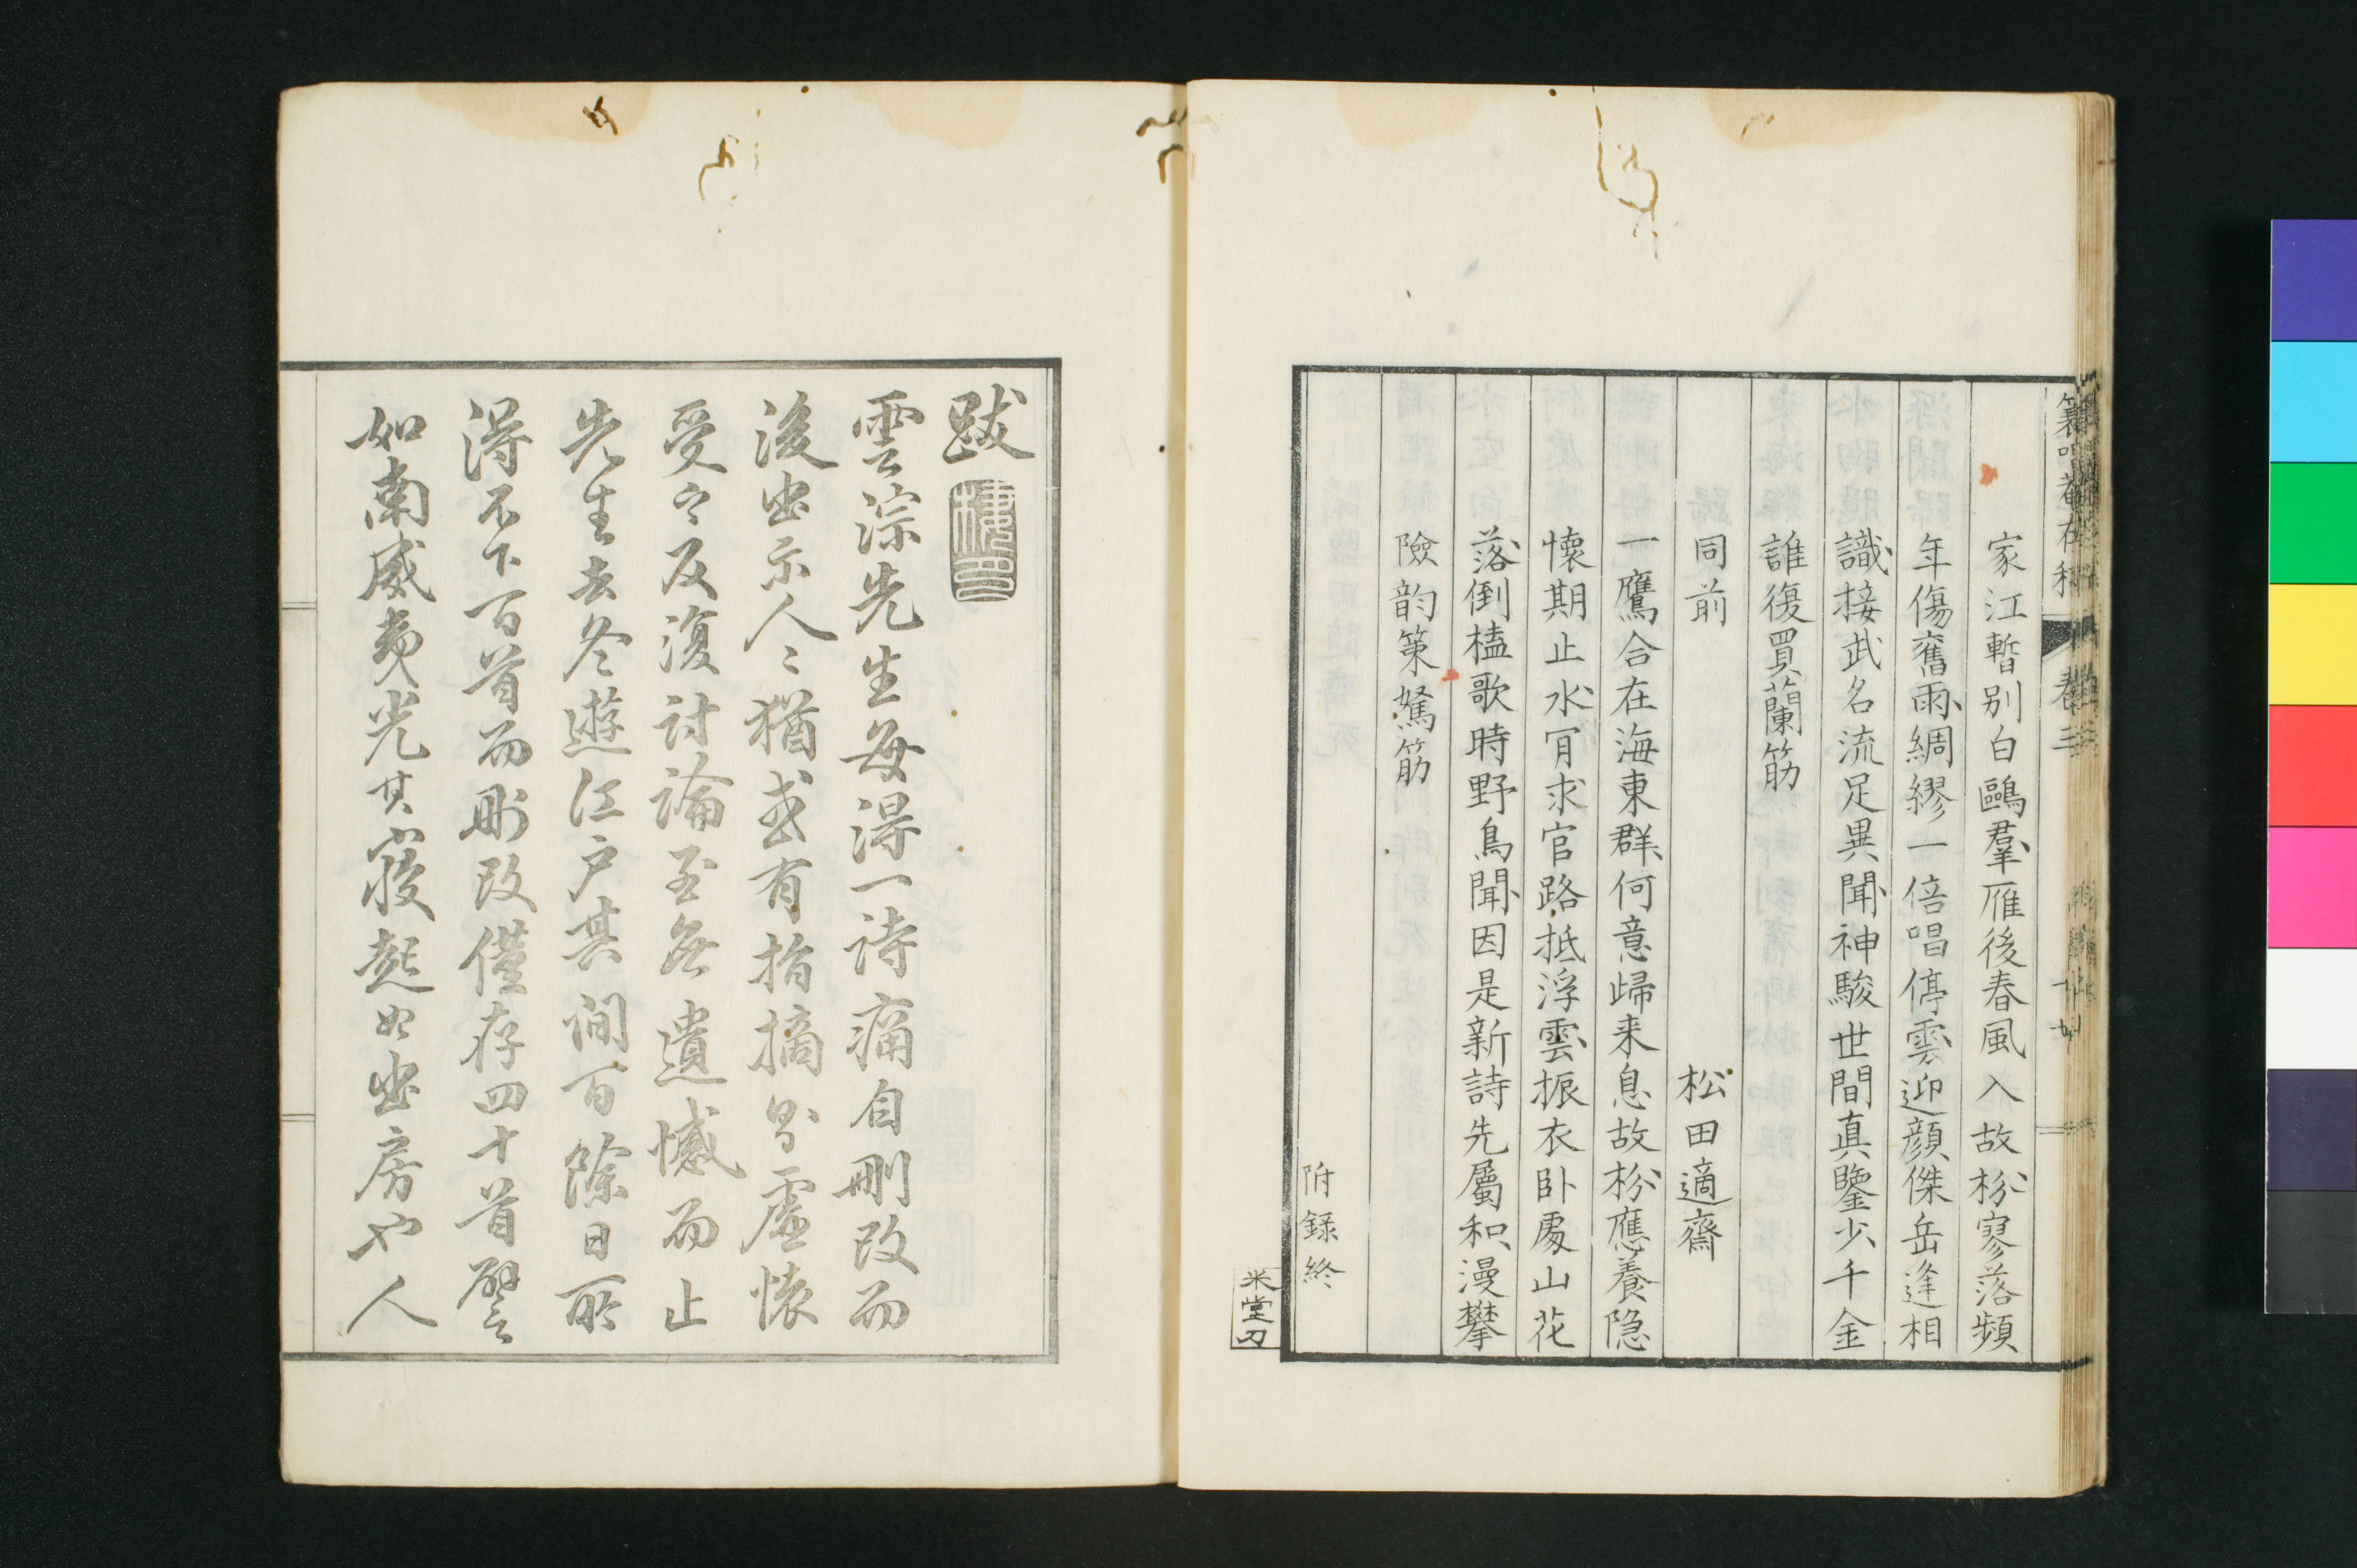 家江暫別白鷗羣雁後春風入故枌寥落頻
年傷舊雨綢繆一倍唱停雲迎顔傑岳逢相
識接武名流足異聞神駿世間真鑒少千金
誰復買蘭筋
同前 松田適齋
一鷹合在海東群何意歸来息故枌應養隐
懷期止水肎求官路抵浮雲振衣卧處山花
落倒榼歌時野鳥聞因是新詩先屬和漫攀
險韵策駑筋
附録終
米堂刀
跋
雲淙先生每得一詩痛自刪改而
後出示人〻猶或有指摘
虛懷
受之反復討論至無遺憾而止
先生去冬遊江戶其間百除日所
得不下百首而刪改僅存四十首譬
如南威夷光其寢起出房也人